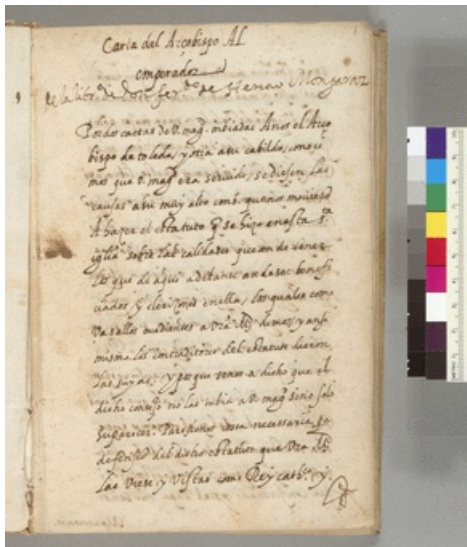 Carta del Arçobispo Al
emperador
de la libr.ª de Don fer.do de Henao Monjaraz
Por dos cartas de V. mag. mbiadas A nos el Arço
bispo de toledo, y otra a su cabildo, conoci
mos que V. mag. era servido, se diesen las
causas a su muy alto cons.º que nos movieron
A hazer el estatuto q se hizo en esta s.ta
iglia sobre las calidades que an de tener
los que de aqui adelante an de ser benefi
ciados y clerizones en ella, los quales como
vasallos obedientes a Vra M. dimos, y ansi
mismo los contraditores del estatuto dieron
las suyas, y porque senos a dicho que el
dicho consejo no las mbia a V. mag. sino solo
su parecer. Parecionos cosa necessaria en
defensa del dicho estatuto que Vra M.
las viese, y vistas como Rey cath.co y